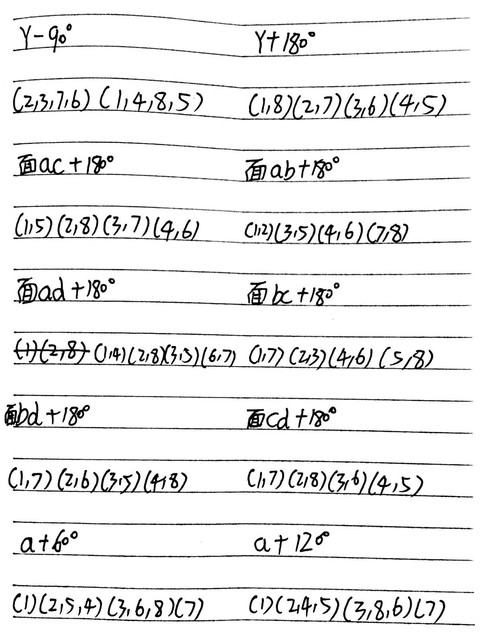 Y-90° Y+180°
(2,3,7,6) (1,4,8,5) (1,8)(2,7)(3,6)(4,5)
面ac+180° 面ab+180°
(1,5)(2,8)(3,7)(4,6) (1,2)(3,5)(4,6)(7,8)
面ad+180° 面bc+180°
(1)(2,8) (1,4)(2,8)(3,5)(6,7) (1,7)(2,3)(4,6)(5,8)
面bd+180° 面cd+180°
(1,7)(2,6)(3,5)(4,8) (1,7)(2,8)(3,6)(4,5)
a+60° a+120°
(1)(2,5,4)(3,6,8)(7) (1)(2,4,5)(3,8,6)(7)